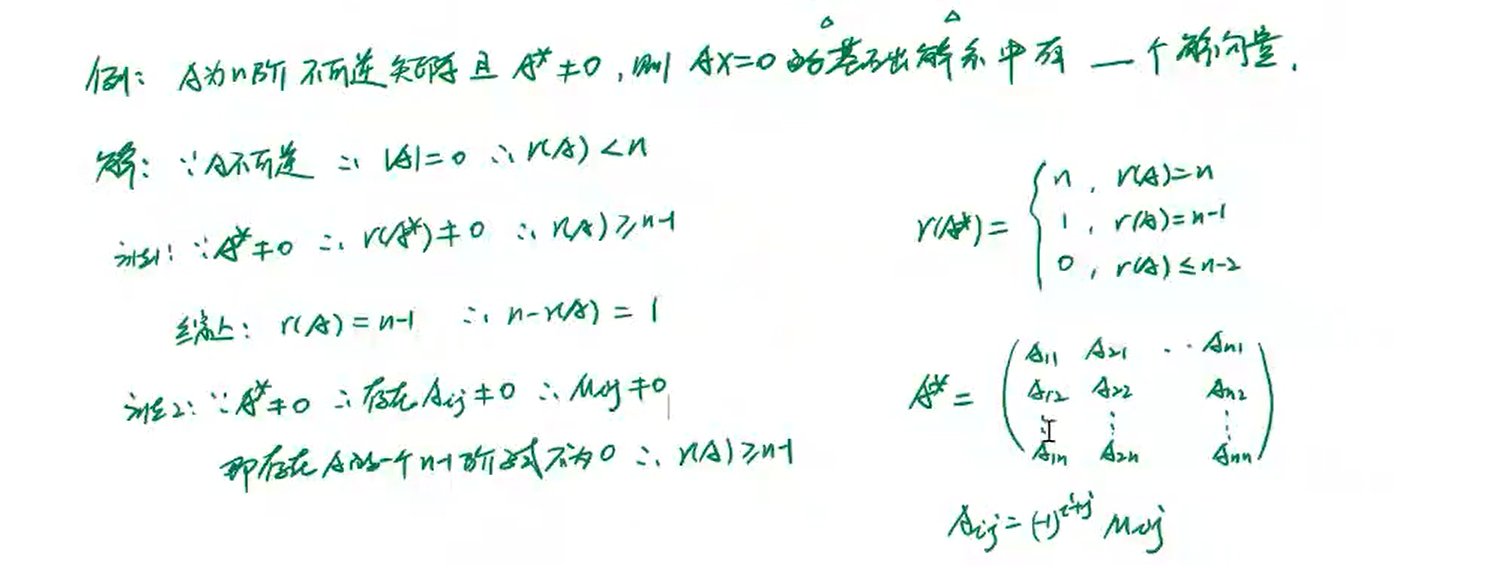 例: A为n阶不可逆矩阵且 A*≠0, 则 AX=0 的基础解系中有 — 个解向量.
解: ∵A不可逆 ∴ |A|=0 ∴ r(A)<n
法1: ∵A*≠0 ∴ r(A*)≠0 ∴ r(A)≥n-1
综上: r(A)=n-1 ∴ n-r(A)=1
法2: ∵A*≠0 ∴存在Aij≠0 ∴Mij≠0
即存在A的一个n-1阶子式不为0 ∴ r(A)≥n-1
r(A*)=
n, r(A)=n
1, r(A)=n-1
0, r(A)≤n-2
A*=
A11 A21 ·· An1
A12 A22 An2
⋮ ⋮ ⋮
A1n A2n Ann
Aij=(-1)^{i+j} Mij